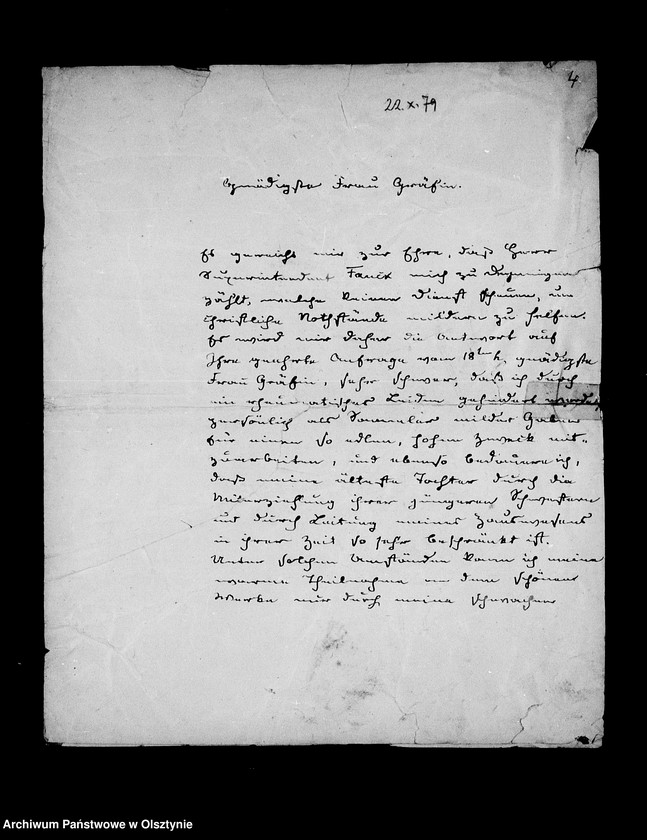 4
22. X. 79
Gnädigste Frau Gräfin.
Es gereicht mir zur Ehre, daß Herr
Superintendent Fauck mich zu denjenigen
zählt, welche keinen Dienst scheuen, um
christliche Nothstände mildern zu helfen.
Es wird mir daher die Antwort auf
Ihre geehrte Anfrage vom 18ten h, gnädigste
Frau Gräfin, sehr schwer, daß ich durch
ein rheumatisches Leiden gehindert werde,
persönlich als Sammler milder Gaben
für einen so edlen, hohen Zweck mit-
zuarbeiten, und ebenso bedauere ich,
daß meine älteste Tochter durch die
Miterziehung ihrer jüngeren Schwestern
und durch Leitung meines Hauswesens
in ihrer Zeit so sehr beschränkt ist.
Unter solchen Umständen kann ich meine
warme Theilnahme an dem schönen
Werke nur durch meine schwachen
Archiwum Państwowe w Olsztynie